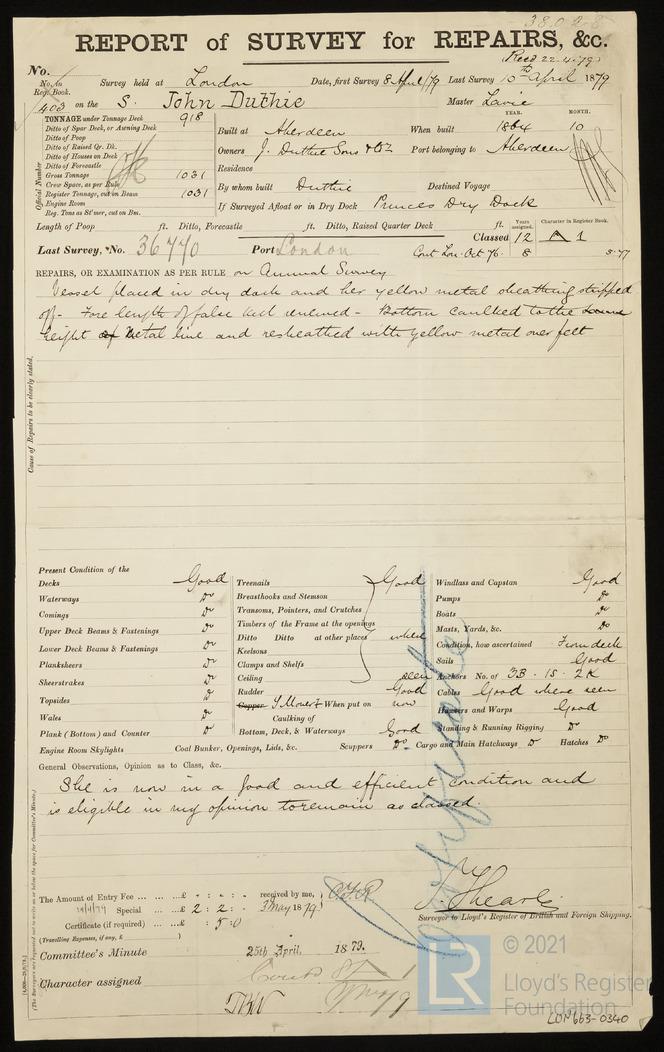 38028
REPORT of SURVEY for REPAIRS, &c.
(Recd 22.4.79)
No.
No. in Reg. Book. Survey held at London Date, first Survey 8 April /79 Last Survey 10th April 1879
403 on the S. John Duthie Master Lavie
TONNAGE under Tonnage Deck 918
Ditto of Spar Deck, or Awning Deck
Ditto of Poop
Ditto of Raised Qr. Dk.
Ditto of Houses on Deck
Ditto of Forecastle
Gross Tonnage 1031
Crew Space, as per Rule
Register Tonnage, cut on Beam 1031
Engine Room
Reg. Tons as St'mer, cut on Bm.
Official Number
YEAR. MONTH.
Built at Aberdeen When built 1864 10
Owners J. Duthie Sons & Co Port belonging to Aberdeen
Residence
By whom built Duthie Destined Voyage
If Surveyed Afloat or in Dry Dock Princes Dry Dock
Length of Poop ft. Ditto, Forecastle ft. Ditto, Raised Quarter Deck ft.
Years assigned. Character in Register Book.
Classed 12 A 1
Last Survey, No. 36740 Port London Cont Lon. Oct 76. 8 5.77
REPAIRS, OR EXAMINATION AS PER RULE on Annual Survey
Vessel placed in dry dock and her yellow metal sheathing stripped
off - Fore length of false keel renewed - Bottom caulked to the
height of Metal line and resheathed with yellow metal over felt
Cause of Repairs to be clearly stated.
Present Condition of the
Decks Good
Waterways Do
Comings Do
Upper Deck Beams & Fastenings Do
Lower Deck Beams & Fastenings Do
Planksheers Do
Sheerstrakes Do
Topsides Do
Wales Do
Plank (Bottom) and Counter Do
Engine Room Skylights
Treenails Good
Breasthooks and Stemson
Transoms, Pointers, and Crutches
Timbers of the Frame at the openings
Ditto Ditto at other places where
Keelsons
Clamps and Shelfs
Ceiling seen
Rudder Good
Copper Y Metal When put on now
Caulking of
Bottom, Deck, & Waterways Good
Coal Bunker, Openings, Lids, &c. Scuppers Do
Windlass and Capstan Good
Pumps Do
Boats Do
Masts, Yards, &c. Do
Condition, how ascertained From deck
Sails Good
Anchors No. of 3B. 1S. 2K
Cables Good where seen
Hawsers and Warps Good
Standing & Running Rigging Do
Cargo and Main Hatchways Do Hatches Do
General Observations, Opinion as to Class, &c.
She is now in a good and efficient condition and
is eligible in my opinion to remain as classed.
The Amount of Entry Fee ... ... ...£ : : received by me,
Special ... ...£ 2 : 2 : 3 May 1879
Certificate (if required) ... ...£ : 5 : 0
(Travelling Expenses, if any, £ )
Surveyor to Lloyd's Register of British and Foreign Shipping.
Committee's Minute 25th April, 1879.
Character assigned
(The Surveyors are requested not to write on or below the space for Committee's Minute.)
LR
© 2021
Lloyd's Register
Foundation
LON663-0340